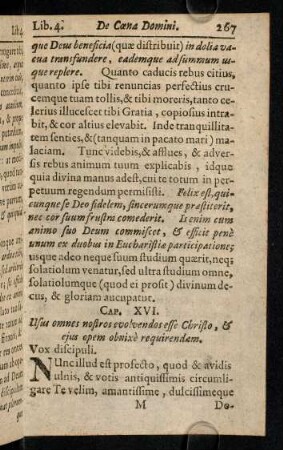 Lib.4. De Cœna Domini. 267
que Deus beneficia (quæ distribuit) in dolia va-
cua transfundere, eademque ad summum us-
que replere. Quanto caducis rebus citius,
quanto ipse tibi renuncias perfectius cru-
cemque tuam tollis, & tibi moreris, tanto ce-
lerius illucescet tibi Gratia, copiosius intra-
bit, & cor altius elevabit. Inde tranquillita-
tem senties, & (tanquam in pacato mari) ma-
laciam. Tunc videbis, & afflues, & adver-
sis rebus animum tuum explicabis, idque
quia divina manus adest, cui te totum in per-
petuum regendum permisisti. Felix est, qui-
cunque se Deo fidelem, sincerumque præstiterit,
nec cor suum frustra comederit. Is enim cum
animo suo Deum commiscet, & efficit penè
unum ex duobus in Eucharistiæ participatione;
usque adeo neque suum studium quærit, neq;
solatiolum venatur, sed ultra studium omne,
solatiolumque (quod ei prosit) divinum de-
cus, & gloriam aucupatur.
CAP. XVI.
Usus omnes nostros evolvendos esse Christo, &
ejus opem obnixè requirendam.
Vox discipuli.
Nunc illud est profecto, quod & avidis
ulnis, & votis antiquissimis circumli-
gare Te velim, amantissime, dulcissimeque
M Do-